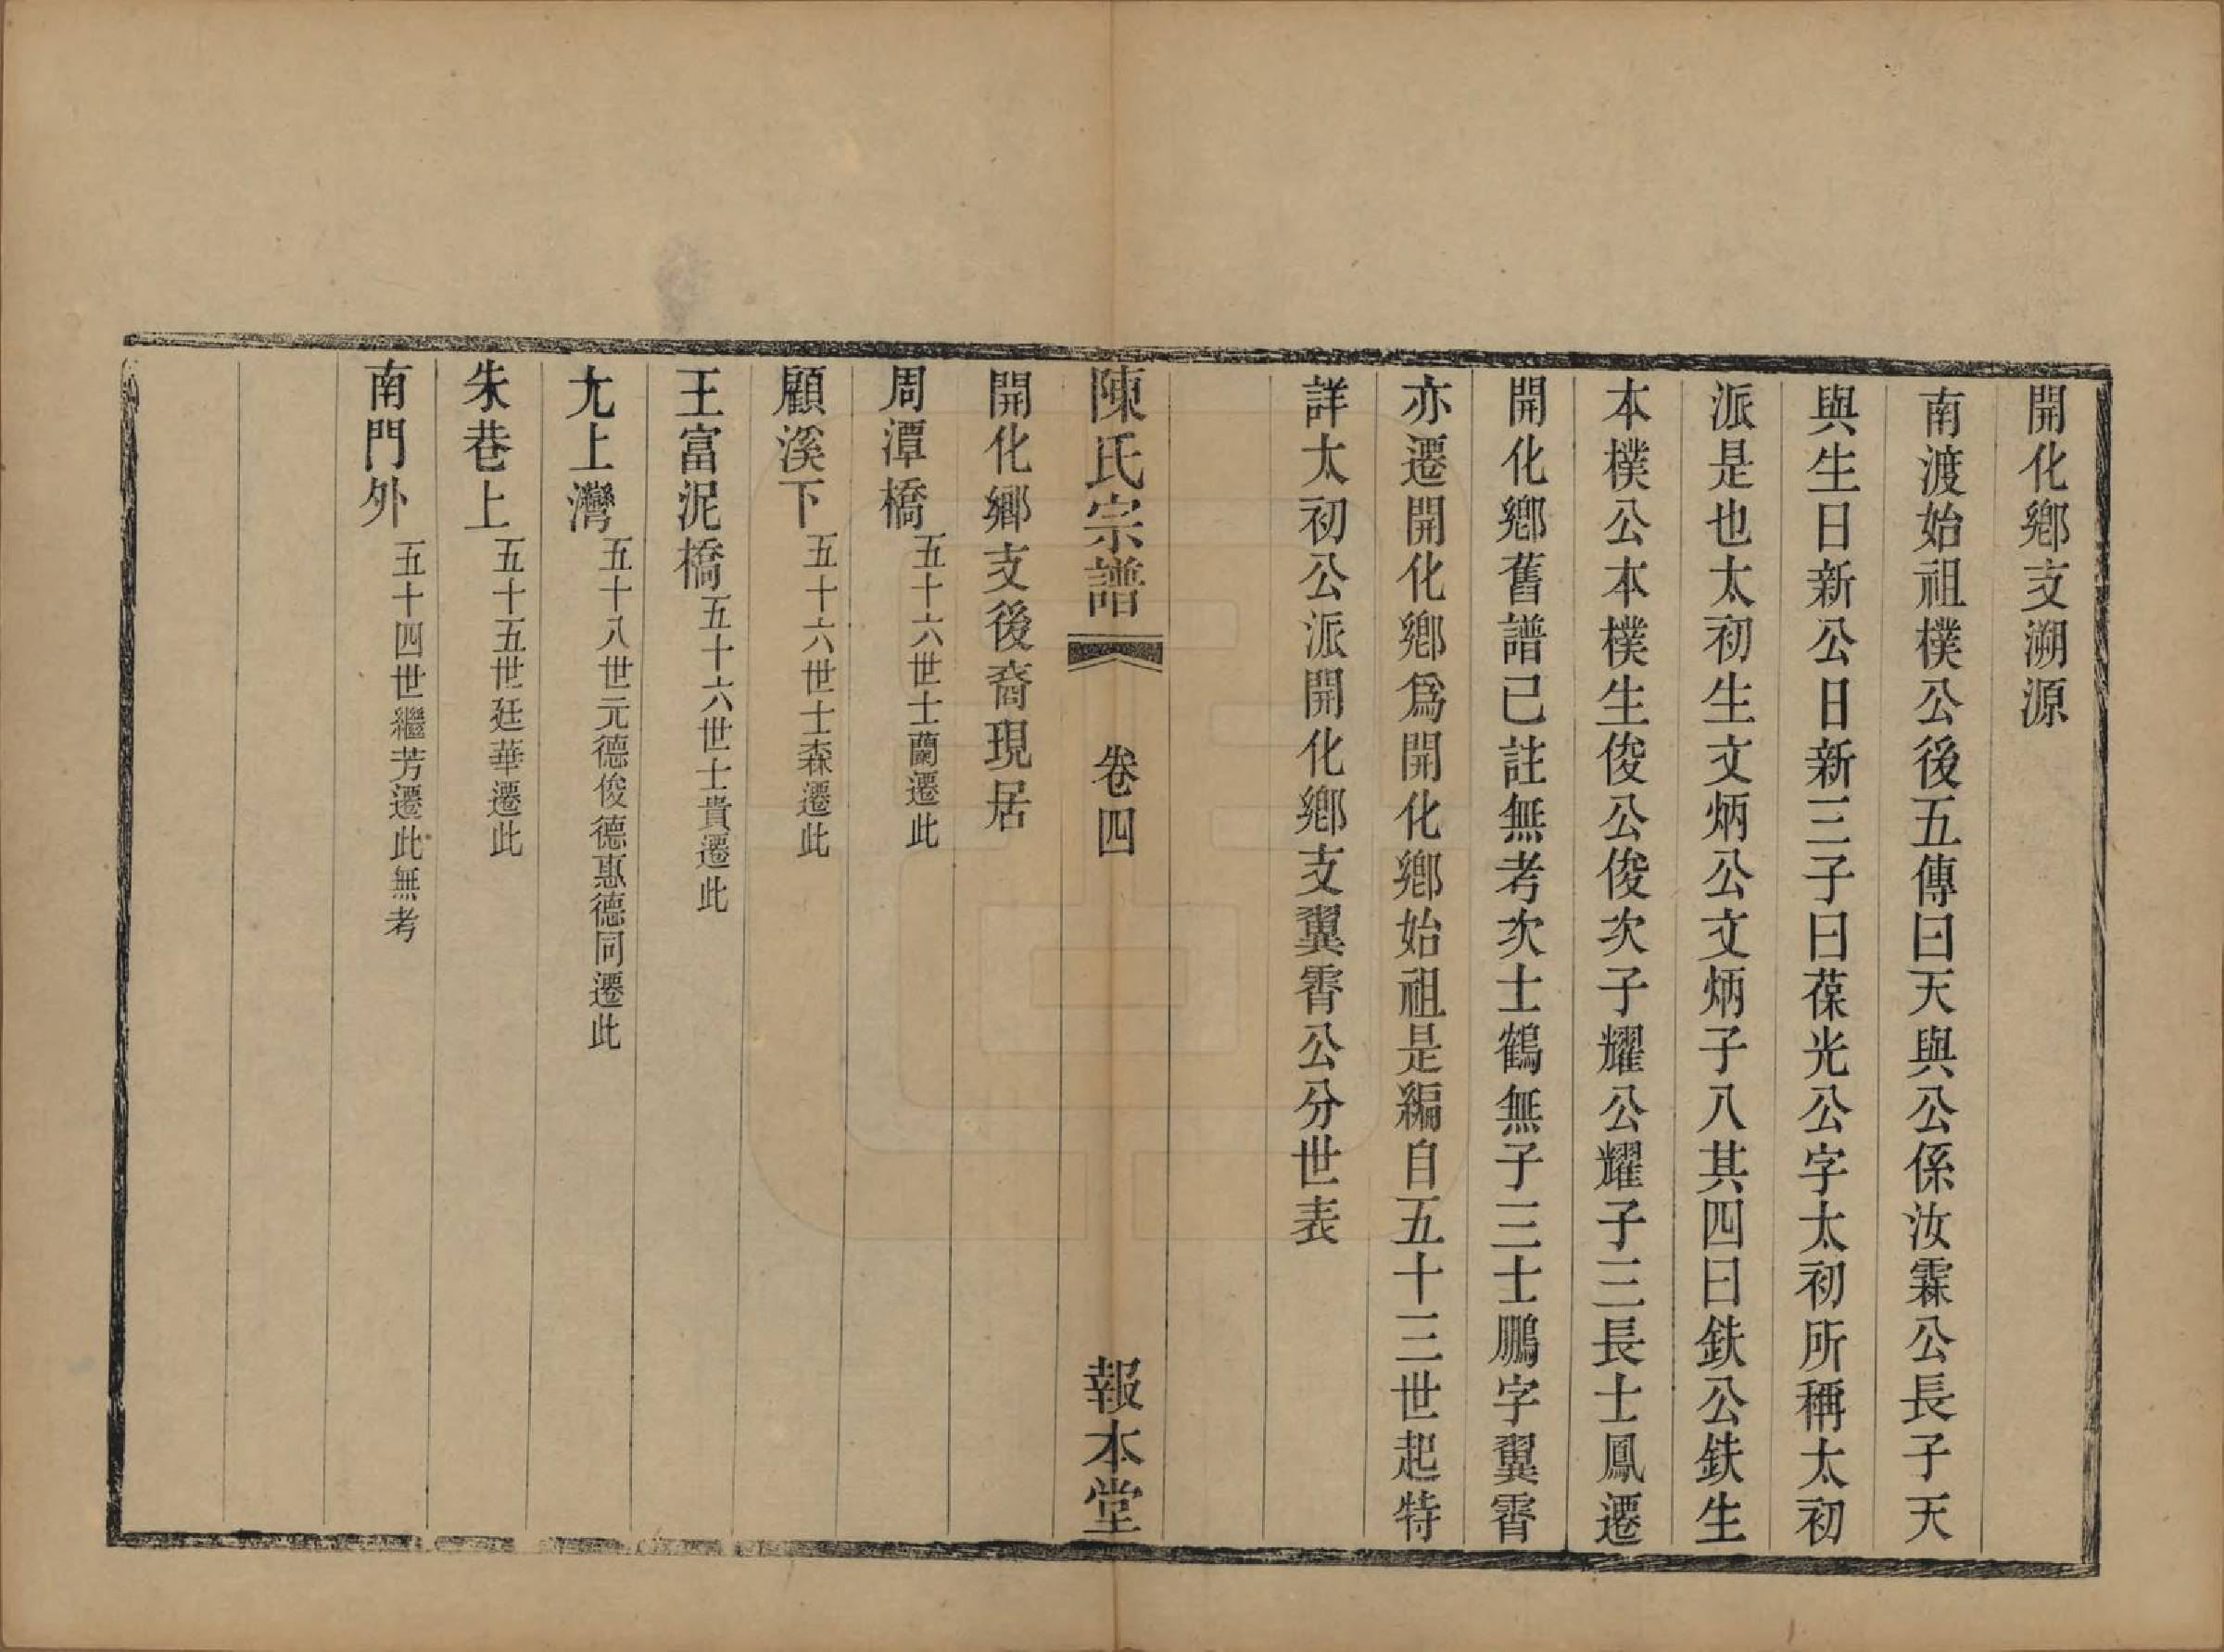 開化鄉支溯源
南渡始祖樸公後五傳曰天與公係汝霖公長子天
與生日新公日新三子曰葆光公字太初所稱太初
派是也太初生文炳公文炳子八其四曰鉄公鉄生
本樸公本樸生俊公俊次子耀公耀子三長士鳳遷
開化鄉舊譜已註無考次士鶴無子三士鵬字翼霄
亦遷開化鄉爲開化鄉始祖是編自五十三世起特
詳太初公派開化鄉支翼霄公分世表
陳氏宗譜 卷四 報本堂
開化鄉支後裔現居
周潭橋 五十六世士蘭遷此
顧溪下 五十六世士森遷此
王富泥橋 五十六世士貴遷此
尢上灣 五十八世元德俊德惠德同遷此
朱巷上 五十五世廷華遷此
南門外 五十四世繼芳遷此無考